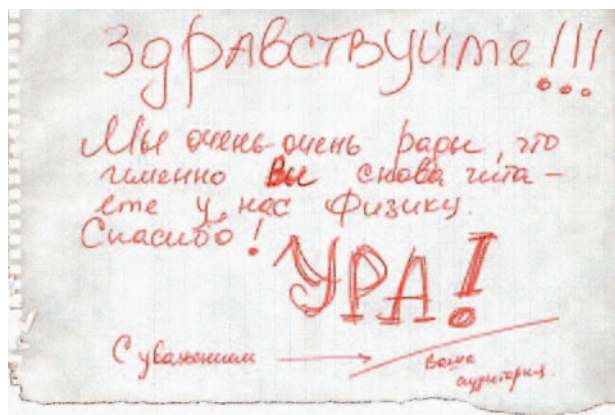 Здравствуйте!!!
Мы очень-очень рады, что
именно Вы снова чита-
ете у нас Физику.
Спасибо!
УРА!
С уважением
Ваша
аудитория.